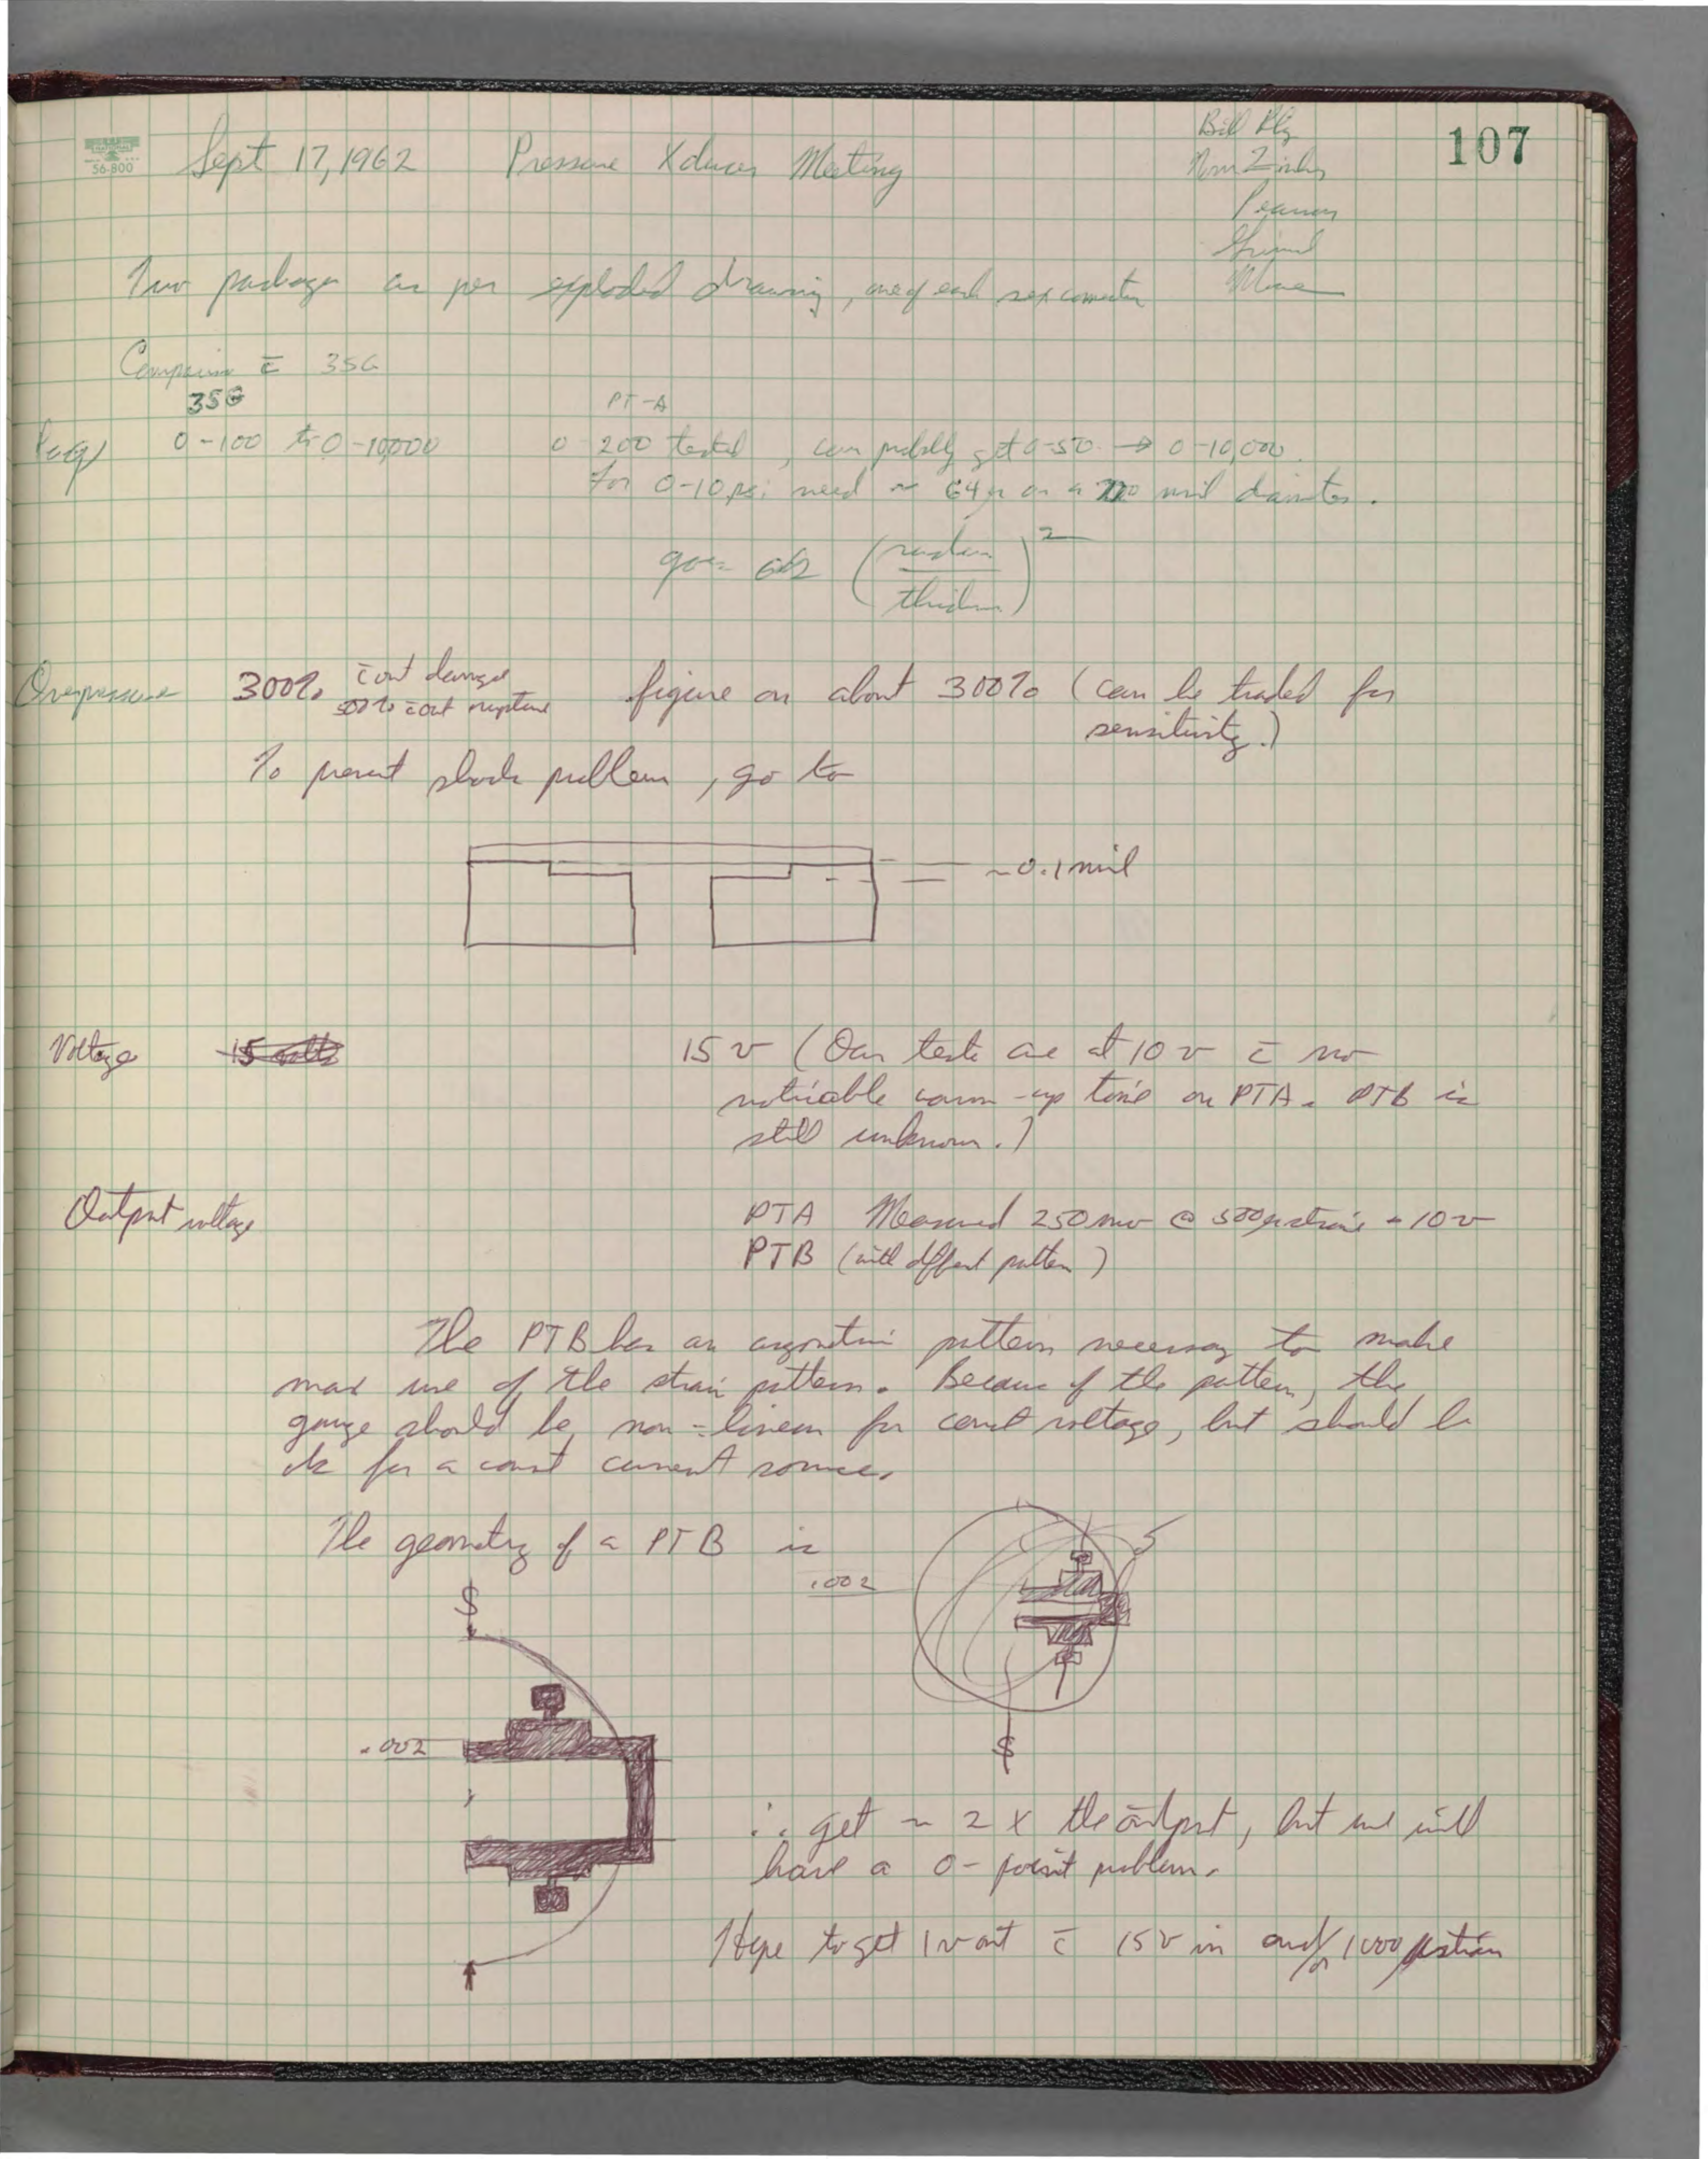 107
56-800
Sept 17, 1962 Pressure Xducer Meeting
Bill
Norm
Pearson
Moore
Two packages as per exploded drawing, one of each sex connector
Comparison c̄ 356
356 PT-A
0-100 to 0-10,000 0-200 tested, can probably get 0-50 → 0-10,000.
For 0-10 psi need ~ 64μ on a mil diameter.
goes as (radius / thickness)²
Overpressure 300% c̄out damage figure on about 300% (can be traded for
500% c̄out rupture sensitivity.)
To prevent shock problem, go to
~0.1 mil
Voltage 15 volts 15 v (Our tests are at 10 v c̄ no
noticable warm-up time on PTA. PTB is
still unknown.)
Output voltage PTA Measured 250 mv @ 500 μstrain - 10 v
PTB (with diffent pattern)
The PTB has an pattern necessary to make
max use of the strain pattern. Because of the pattern, the
gauge should be non-linear for const voltage, but should be
ok for a const current source.
The geometry of a PTB is
.002
.002
∴ get ~ 2 x the output, but we will
have a 0-point problem.
Hope to get 1 v out c̄ 15 v in and/or 1000 μstrain